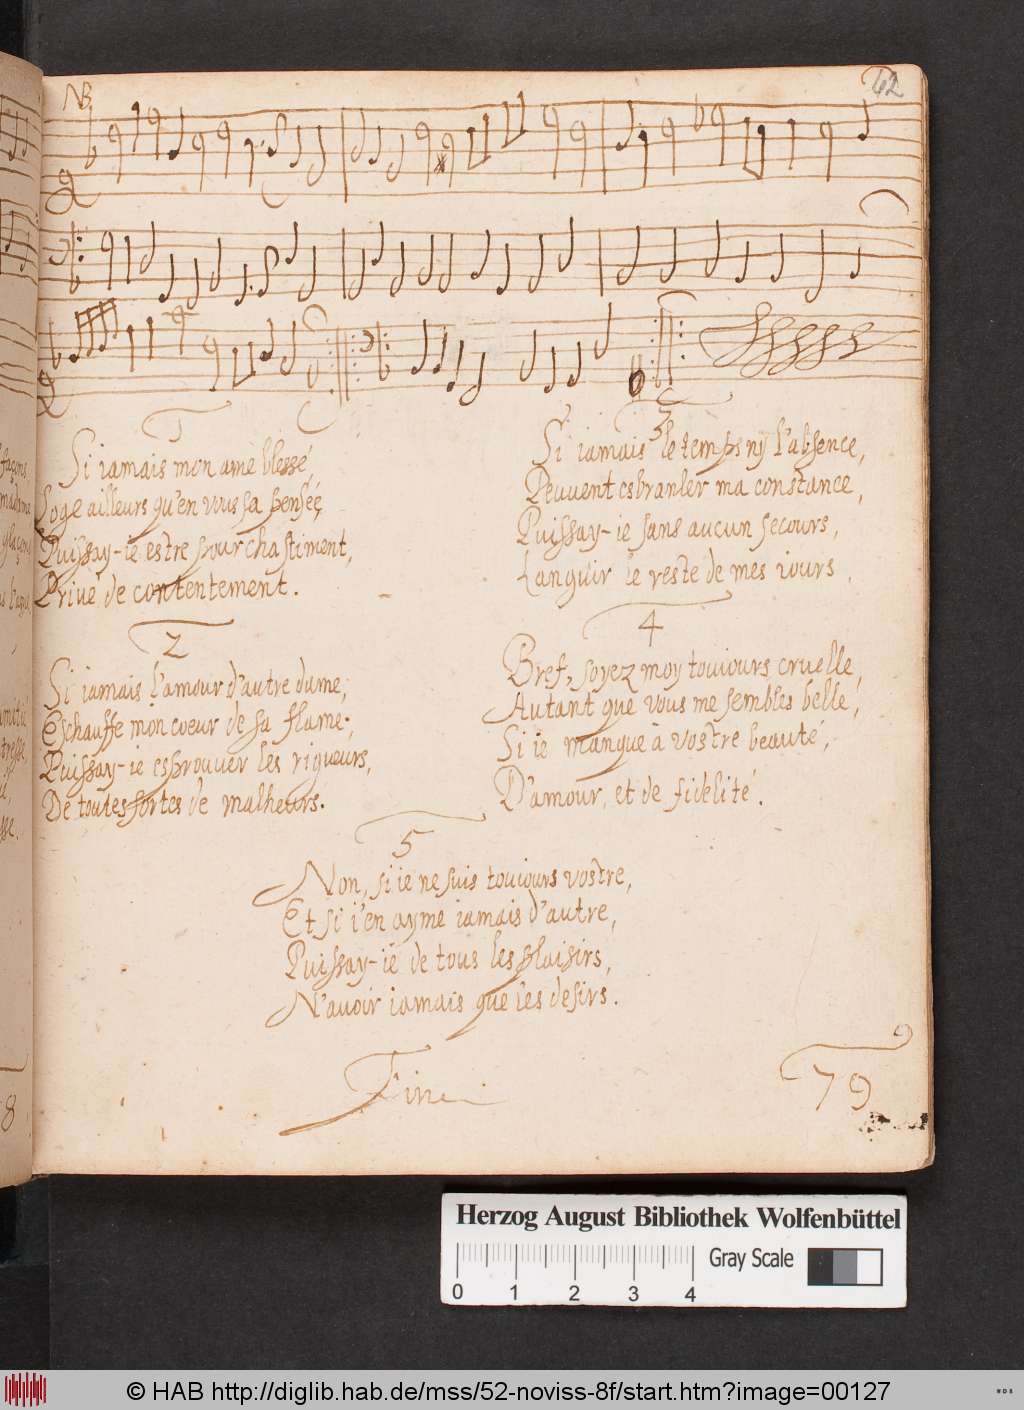 NB
62
1
Si iamais mon ame blessé,
Loge ailleurs qu'en vous sa pensée,
Puissay-ie estre pour chastiment,
Priué de contentement.
2
Si iamais l'amour d'autre dame,
Eschauffe mon coeur de sa flame,
Puissay-ie esprouver les rigueurs,
De toutes sortes de malheurs.
3
Si iamais le temps ny l'absence,
Peuuent esbranler ma constance,
Puissay-ie sans aucun secours,
Languir le reste de mes iours.
4
Bref, soyez moy touiours cruelle,
Autant que vous me sembles belle,
Si ie manque à vostre beauté,
D'amour, et de fidelité.
5
Non, si ie ne suis touiours vostre,
Et si i'en ayme iamais d'autre,
Puissay-ie de tous les plaisirs,
N'auoir iamais que les desirs.
Fine
79
8
Herzog August Bibliothek Wolfenbüttel
Gray Scale
0 1 2 3 4
© HAB http://diglib.hab.de/mss/52-noviss-8f/start.htm?image=00127